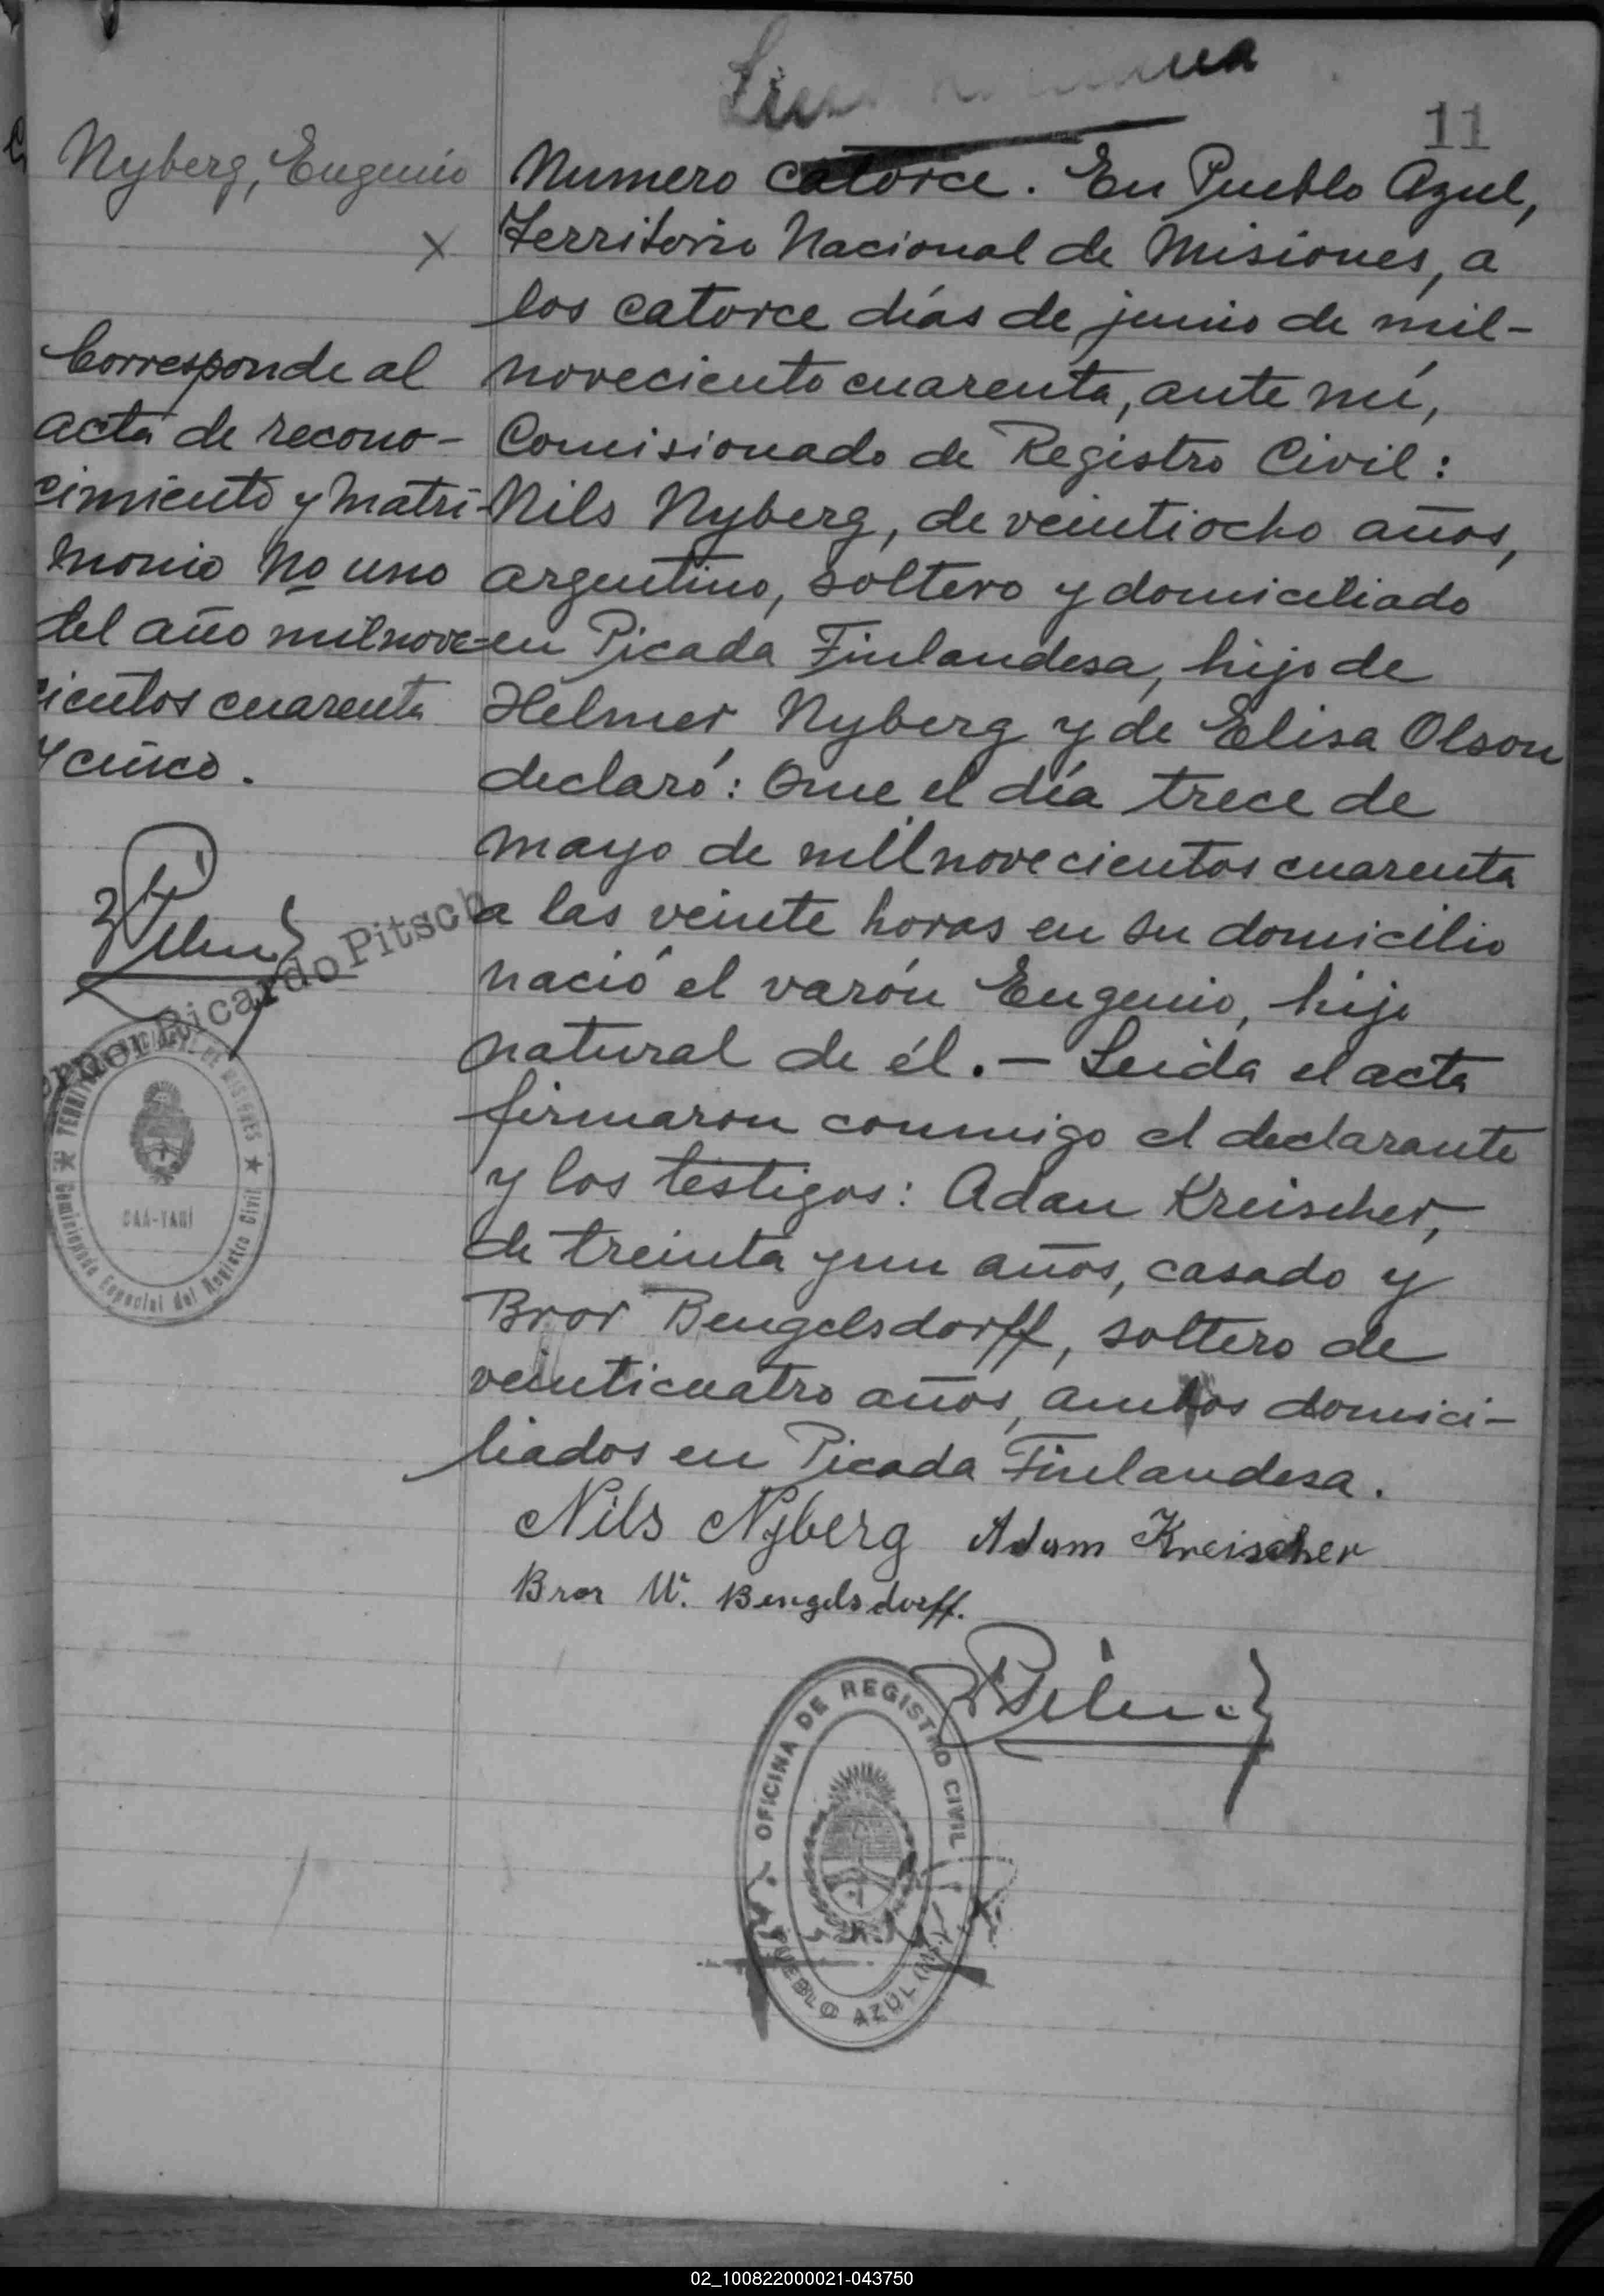 11
Nyberg, Eugenio
X
Corresponde al
acta de recono-
cimiento y Matri-
monio No uno
del año milnove-
cientos cuarenta
y cinco.
Ricardo Pitsch
TERRITORIO NACIONAL DE MISIONES
CAÁ-YARÍ
Comisionado Especial del Registro Civil
Numero catorce. En Pueblo Azul,
Territorio Nacional de Misiones, a
los catorce días de junio de mil-
noveciento cuarenta, ante mí,
Comisionado de Registro Civil:
Nils Nyberg, de veintiocho años,
argentino, soltero y domiciliado
en Picada Finlandesa, hijo de
Helmer Nyberg y de Elisa Olson
declaró: Que el día trece de
mayo de milnovecientos cuarenta
a las veinte horas en su domicilio
nació el varón Eugenio, hijo
natural de él. — Leida el acta
firmaron conmigo el declarante
y los testigos: Adan Kreischer,
de treinta y un años, casado y
Bror Bengelsdorff, soltero de
veinticuatro años, ambos domici-
liados en Picada Finlandesa.
Nils Nyberg Adam Kreischer
Bror W. Bengelsdorff.
OFICINA DE REGISTRO CIVIL
PUEBLO AZUL (Ms.)
02_100822000021-043750